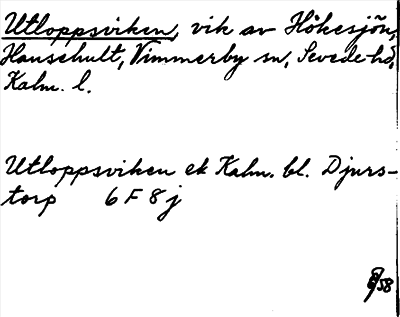 Utloppsviken, vik av Hökesjön,
Hanschult, Vimmerby sn, Sevede hd,
Kalm. l.
Utloppsviken ek Kalm. bl. Djurs-
torp 6 F 8 j